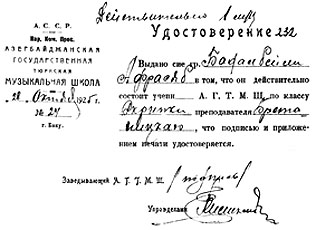 Действительно 1 мгц
Удостоверение 232
А. С. С. Р.
Нар. Ком. Прос.
АЗЕРБАЙДЖАНСКАЯ
ГОСУДАРСТВЕННАЯ
ТЮРКСКАЯ
МУЗЫКАЛЬНАЯ ШКОЛА
28 Октяб 1925 г.
№ 24
г. Баку.
Выдано сие гр. Бадалбейли
Афрасяб в том, что он действительно
состоит учени А. Г. Т. М. Ш. по классу
Скрипки преподавателя
что подписью и приложе-
нием печати удостоверяется.
Заведывающий А. Г. Т. М. Ш. (подпись)
Управделами